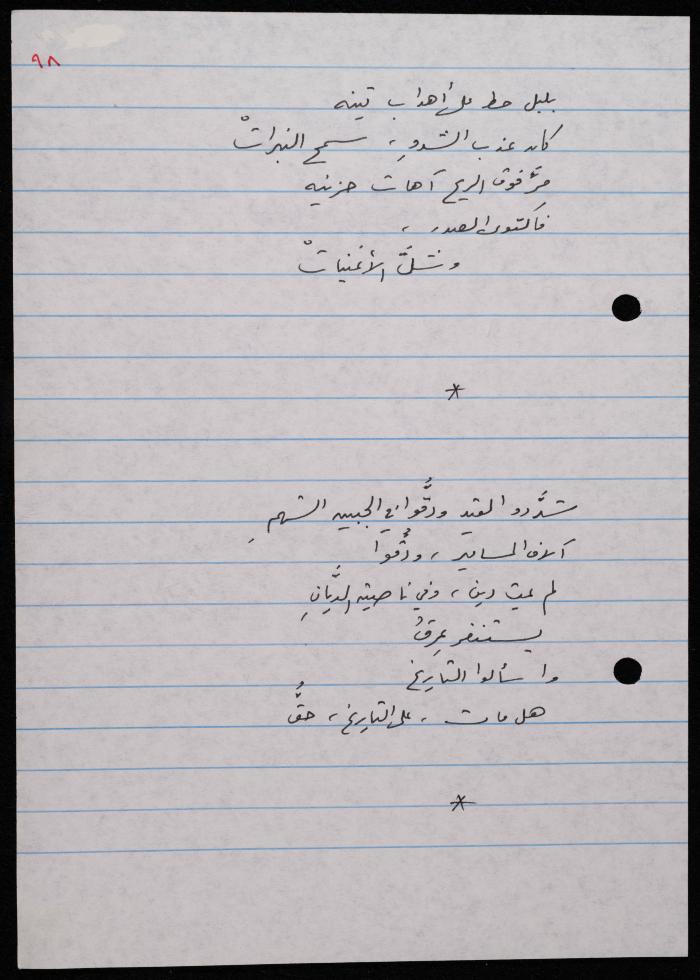 ٩٨
بلبل حط على أهداب تينه
كان عذب الشدوِ، سمح النبراتْ
مرَّ فوق الريح آهات حزينه
فاكتوى الصدر،
وشلَّ الأغنياتْ
*
شدَّدوا القيد ودقُّوا في الجبين الشهم
آلاف المسامير، ودُقُّوا
لم يمت دين، وفي ناصية الديَّانِ
يستنفر عِرقُ
وا سألوا التاريخ
هل مات، على التاريخ، حقُّ
*